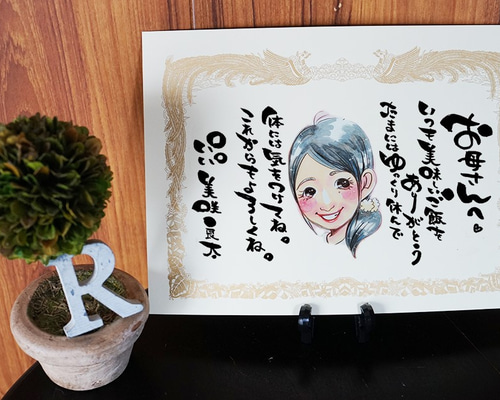 お母さんへ。
いつも美味しいご飯を
ありがとう
たまにはゆっくり休んで
体には気をつけてね。
これからもよろしくね。
美咲
R